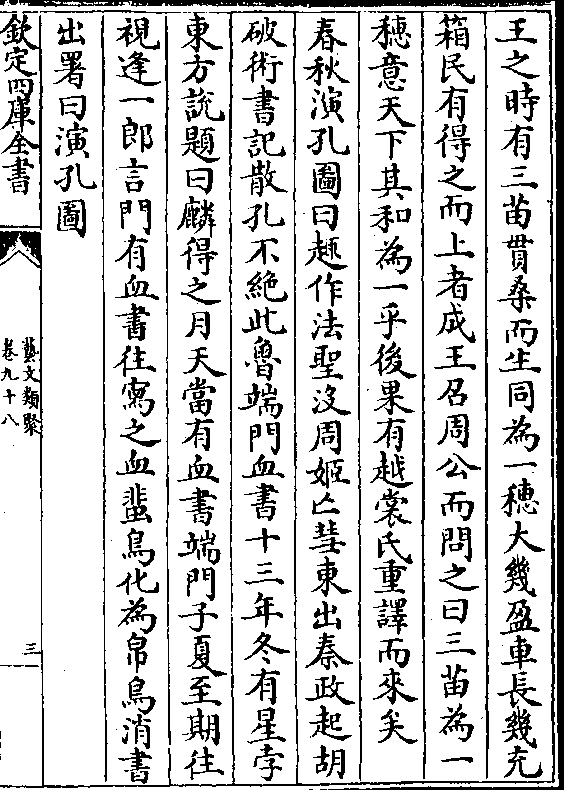 王之時有三苗貫桑而生同為一穗大幾盈車長幾充
箱民有得之而上者成王召周公而問之曰三苗為一
穗意天下其和為一乎後果有越裳氏重譯而來矣
春秋演孔圖曰趍作法聖沒周姬亡彗東出秦政起胡
破術書記散孔不絶此魯端門血書十三年冬有星孛
東方説題曰麟得之月天當有血書端門子夏至期往
視逢一郎言門有血書往寫之血蜚鳥化為帛鳥消書
出署曰演孔圖
欽定四庫全書
藝文類聚
卷九十八
三